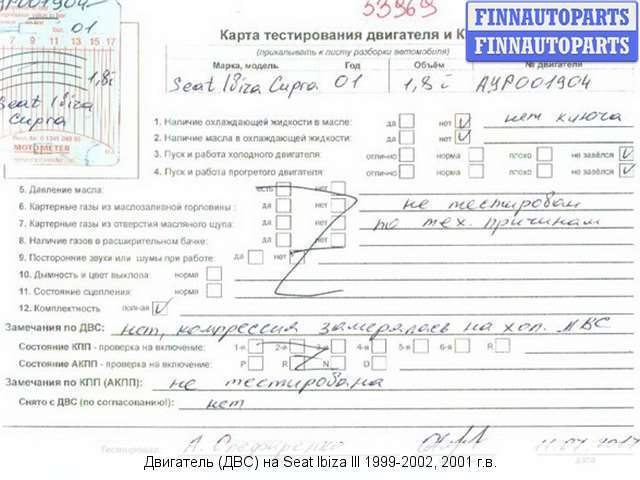 53969
FINNAUTOPARTS
FINNAUTOPARTS
AYP001904
01
7 9 11 13 15 17
1,8i
Seat Ibiza
Cupra
MOTOMETER
Карта тестирования двигателя и К
(прикалывать к листу разборки автомобиля)
Марка, модель Год Объём № двигателя
Seat Ibiza Cupra 01 1,8i AYP001904
1. Наличие охлаждающей жидкости в масле: да нет нет ключа
2. Наличие масла в охлаждающей жидкости: да нет
3. Пуск и работа холодного двигателя: отлично норма плохо не завёлся
4. Пуск и работа прогретого двигателя: отлично норма плохо не завёлся
5. Давление масла: есть нет
6. Картерные газы из маслозаливной горловины : да нет не тестировали
7. Картерные газы из отверстия масляного щупа: да нет по тех. причинам
8. Наличие газов в расширительном бачке: да нет
9. Посторонние звуки или шумы при работе: да нет
10. Дымность и цвет выхлопа: норма
11. Состояние сцепления: норма
12. Комплектность полная
Замечания по ДВС: нет, компрессия замерялась на хол. ДВС
Состояние КПП - проверка на включение: 1-я 2-я 3-я 4-я 5-я 6-я R
Состояние АКПП - проверка на включение: P R N D
Замечания по КПП (АКПП): не тестирована
Снято с ДВС (по согласованию!): нет
Тестировал А.
дата
Двигатель (ДВС) на Seat Ibiza III 1999-2002, 2001 г.в.